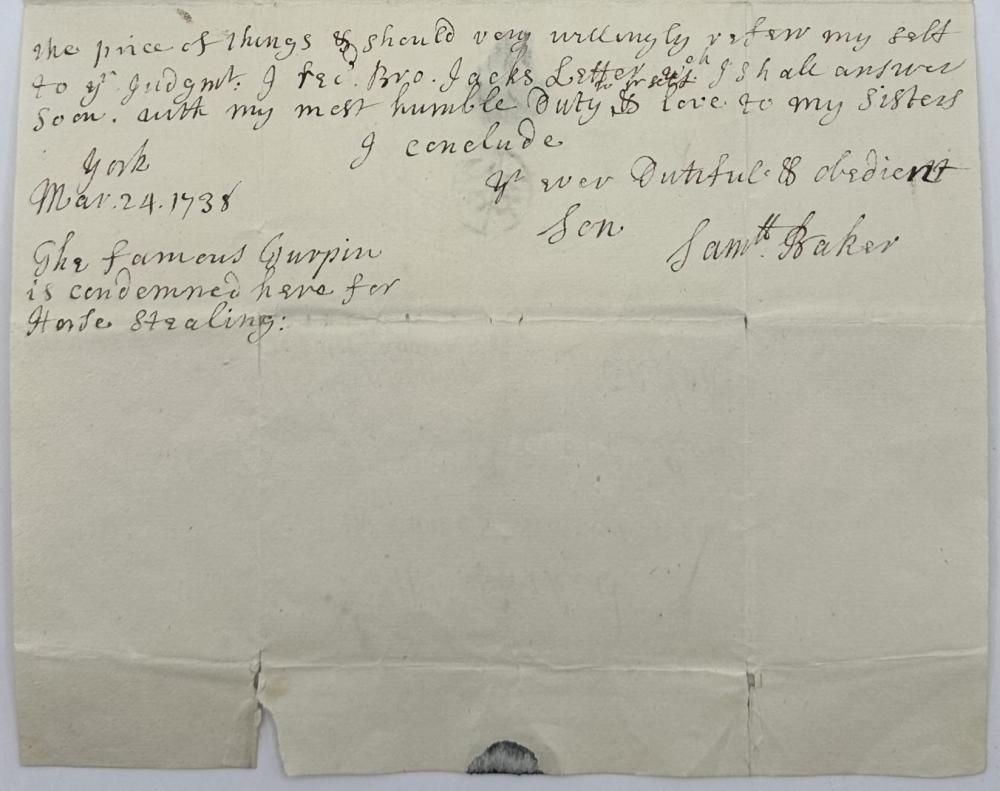 the price of things & should very willingly refer my self
to yr. Judgmt. I rec'd. Bro. Jacks Letter wch I shall answer
soon. with my most humble Duty to yr self & love to my Sisters
I conclude
yr ever Dutiful & obedient
Son
Samll. Baker
York
Mar. 24. 1738
The famous Turpin
is condemned here for
Horse Stealing: